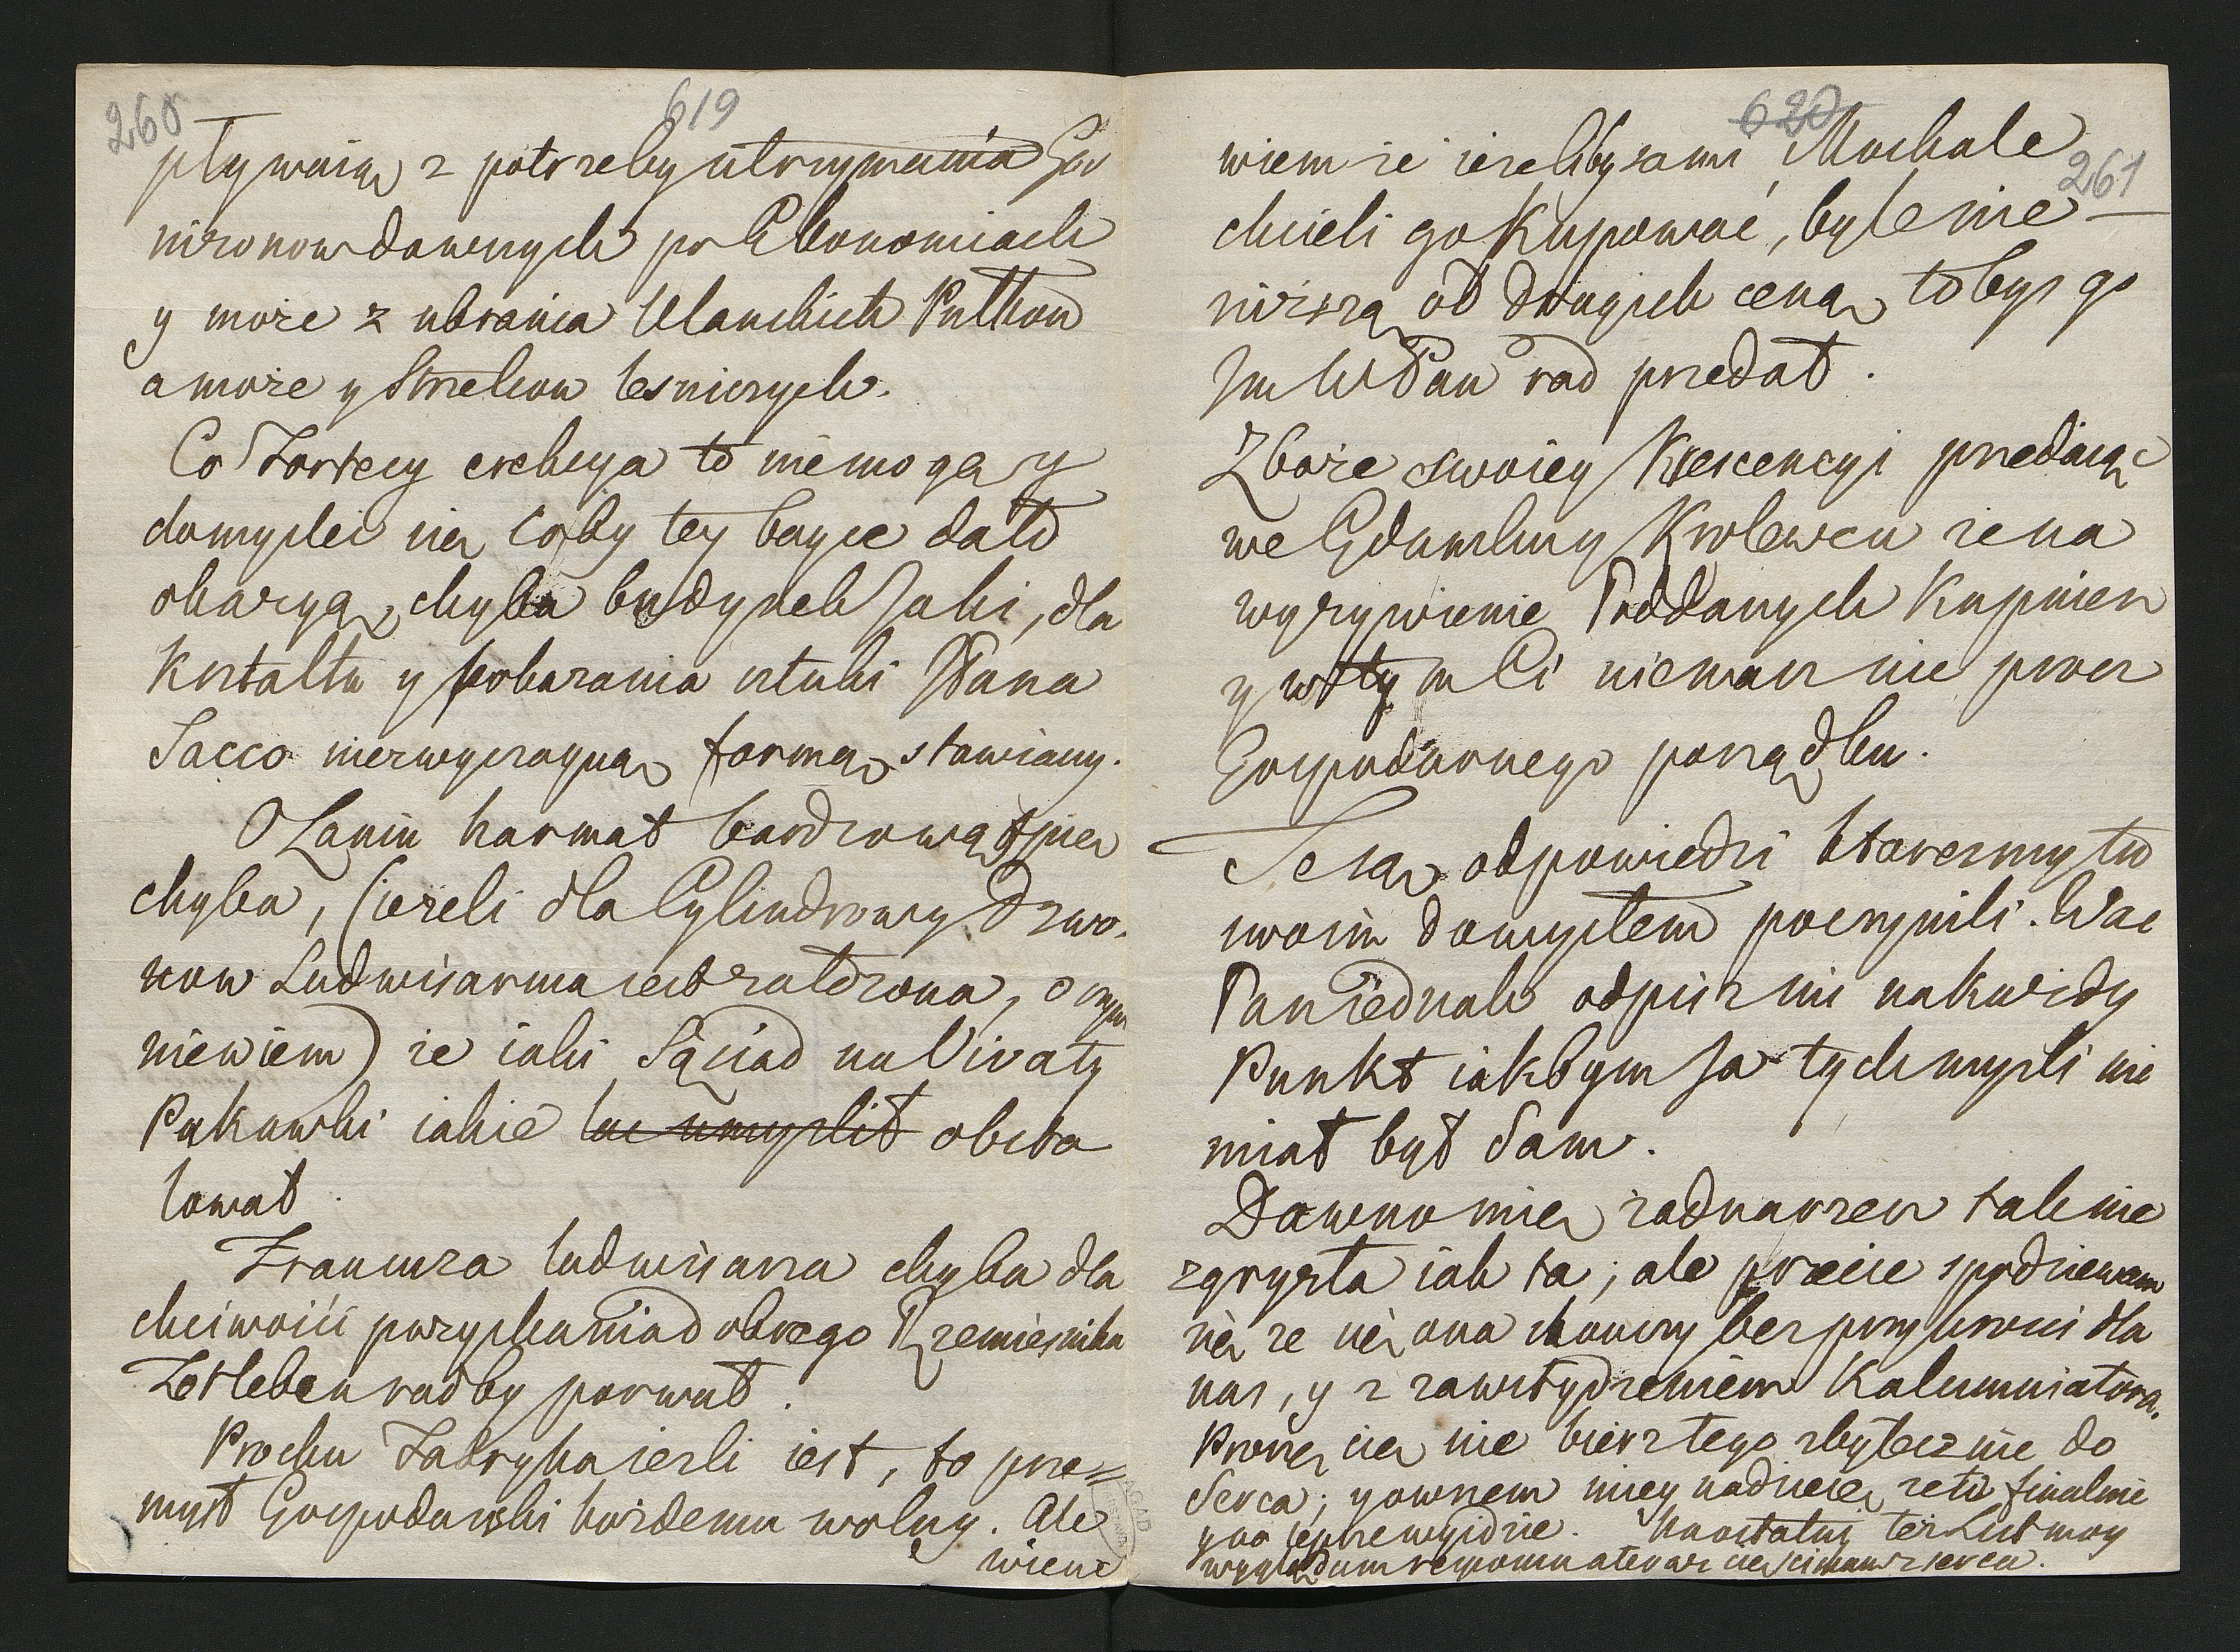 260
619
pływaią z potrzeby utrzymania Gar
nizonow dawnych po Ekonomiach
y może z ubrania Ulanskich Pułkow
a może y Strzelcow lesniczych.
Co Fortecy crebuya to niemogę y
domyslec się coby tey bayce dało
okazyą, chyba budynek Jaki, dla
Kształtu y pokazania sztuki JPana
Sacco niezwyczayną formą stawiany.
O Laniu harmat bardzo wątpię
chyba, (iezeli dla Cylindrow y Dzwo-
now Ludwisarnia iest załozona, o czym
niewiem) ze iaki Sąsiad na Vivaty
Pukawki iakie tac umyslił obsta
lował.
Francuza ludwisarza chyba dla
chciwości pozyskania dobrego Rzemiesnika
Zetleben radby porwał.
Prochu Fabryka iesli iest, to prze=
mysł Gospodarski kazdemu wolny. Ale
wiem
620
261
wiem ze iezeliby sami Moskale
chcieli go Kupować, byle nie
nizszą od drugich ceną, tobys go
Im WPan rad przedał.
Zboze swoiey Krescencyi przedaiąc
we Gdansku y Krolewcu ze na
wyzywienie Poddanych Kupuiesz
y w tym Ci niemasz nic procz
Gospodarnego porządku.
Te są odpowiedzi ktoresmy tu
swoim domysłem poczynili. Wać
Pan iednak odpisz mi nakazdy
Punkt iakbym Ja tych mysli nie
miał był Sam.
Dawno mię zadna rzecz tak nie
zgryzła iak ta; ale przecie spodziewam
się ze się ona skonczy bez przykrosci dla
nas, y z zawstydzeniem Kalumniatora.
Proszę cię nie bierz tego zbytecznie do
Serca; y owszem miey nadzieię ze to finalnie
na lepsze wyidzie. Na ostatni też List moy
wyglądam responsu a teraz cię sciskam z serca.